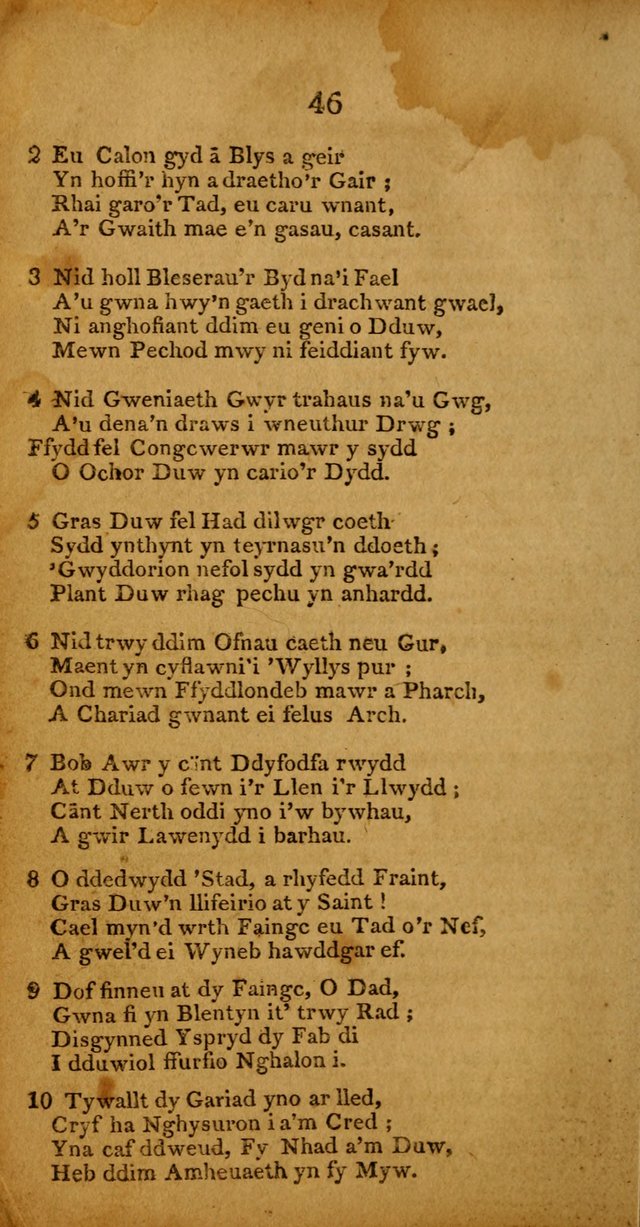 46
2 Eu Calon gyd ā Blys a geir
Yn hoffi'r hyn a draetho'r Gair ;
Rhai garo'r Tad, eu caru wnant,
A'r Gwaith mae e'n gasau, casant.
3 Nid holl Bleserau'r Byd na'i Fael
A'u gwna hwy'n gaeth i drachwant gwael,
Ni anghofiant ddim eu geni o Dduw,
Mewn Pechod mwy ni feiddiant fyw.
4 Nid Gweniaeth Gwyr trahaus na'u Gwg,
A'u dena'n draws i wneuthur Drwg ;
Ffydd fel Congcwerwr mawr y sydd
O Ochor Duw yn cario'r Dydd.
5 Gras Duw fel Had dilwgr coeth
Sydd ynthynt yn teyrnasu'n ddoeth ;
'Gwyddorion nefol sydd yn gwa'rdd
Plant Duw rhag pechu yn anhardd.
6 Nid trwy ddim Ofnau caeth neu Gur,
Maent yn cyflawni'i 'Wyllys pur ;
Ond mewn Ffyddlondeb mawr a Pharch,
A Chariad gwnant ei felus Arch.
7 Bob Awr y cānt Ddyfodfa rwydd
At Dduw o fewn i'r Llen i'r Llwydd ;
Cānt Nerth oddi yno i'w bywhau,
A gwir Lawenydd i barhau.
8 O ddedwydd 'Stad, a rhyfedd Fraint,
Gras Duw'n llifeirio at y Saint !
Cael myn'd wrth Faingc eu Tad o'r Nef,
A gwel'd ei Wyneb hawddgar ef.
9 Dof finneu at dy Faingc, O Dad,
Gwna fi yn Blentyn it' trwy Rad ;
Disgynned Yspryd dy Fab di
I dduwiol ffurfio Nghalon i.
10 Tywallt dy Gariad yno ar lled,
Cryf ha Nghysuron i a'm Cred ;
Yna caf ddweud, Fy Nhad a'm Duw,
Heb ddim Amheuaeth yn fy Myw.